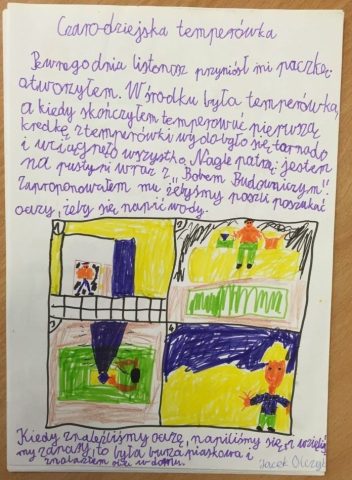 Czarodziejska temperówka
Pewnego dnia listonosz przyniósł mi paczkę,
otworzyłem. W środku była temperówka,
a kiedy skończyłem temperować pierwszą
kredkę z temperówki wydobyło się tornado
i wciągnęło wszystko. Nagle patrzę jestem
na pustyni wraz z „Bobem Budowniczym".
Zaproponowałem mu żebyśmy poszli poszukać
oazy, żeby się napić wody.
1
2
3
4
Kiedy znaleźliśmy oazę, napiliśmy się, a wzięliś
my zapasy, to była burza piaskowa i
znalazłem się w domu.
Jacek